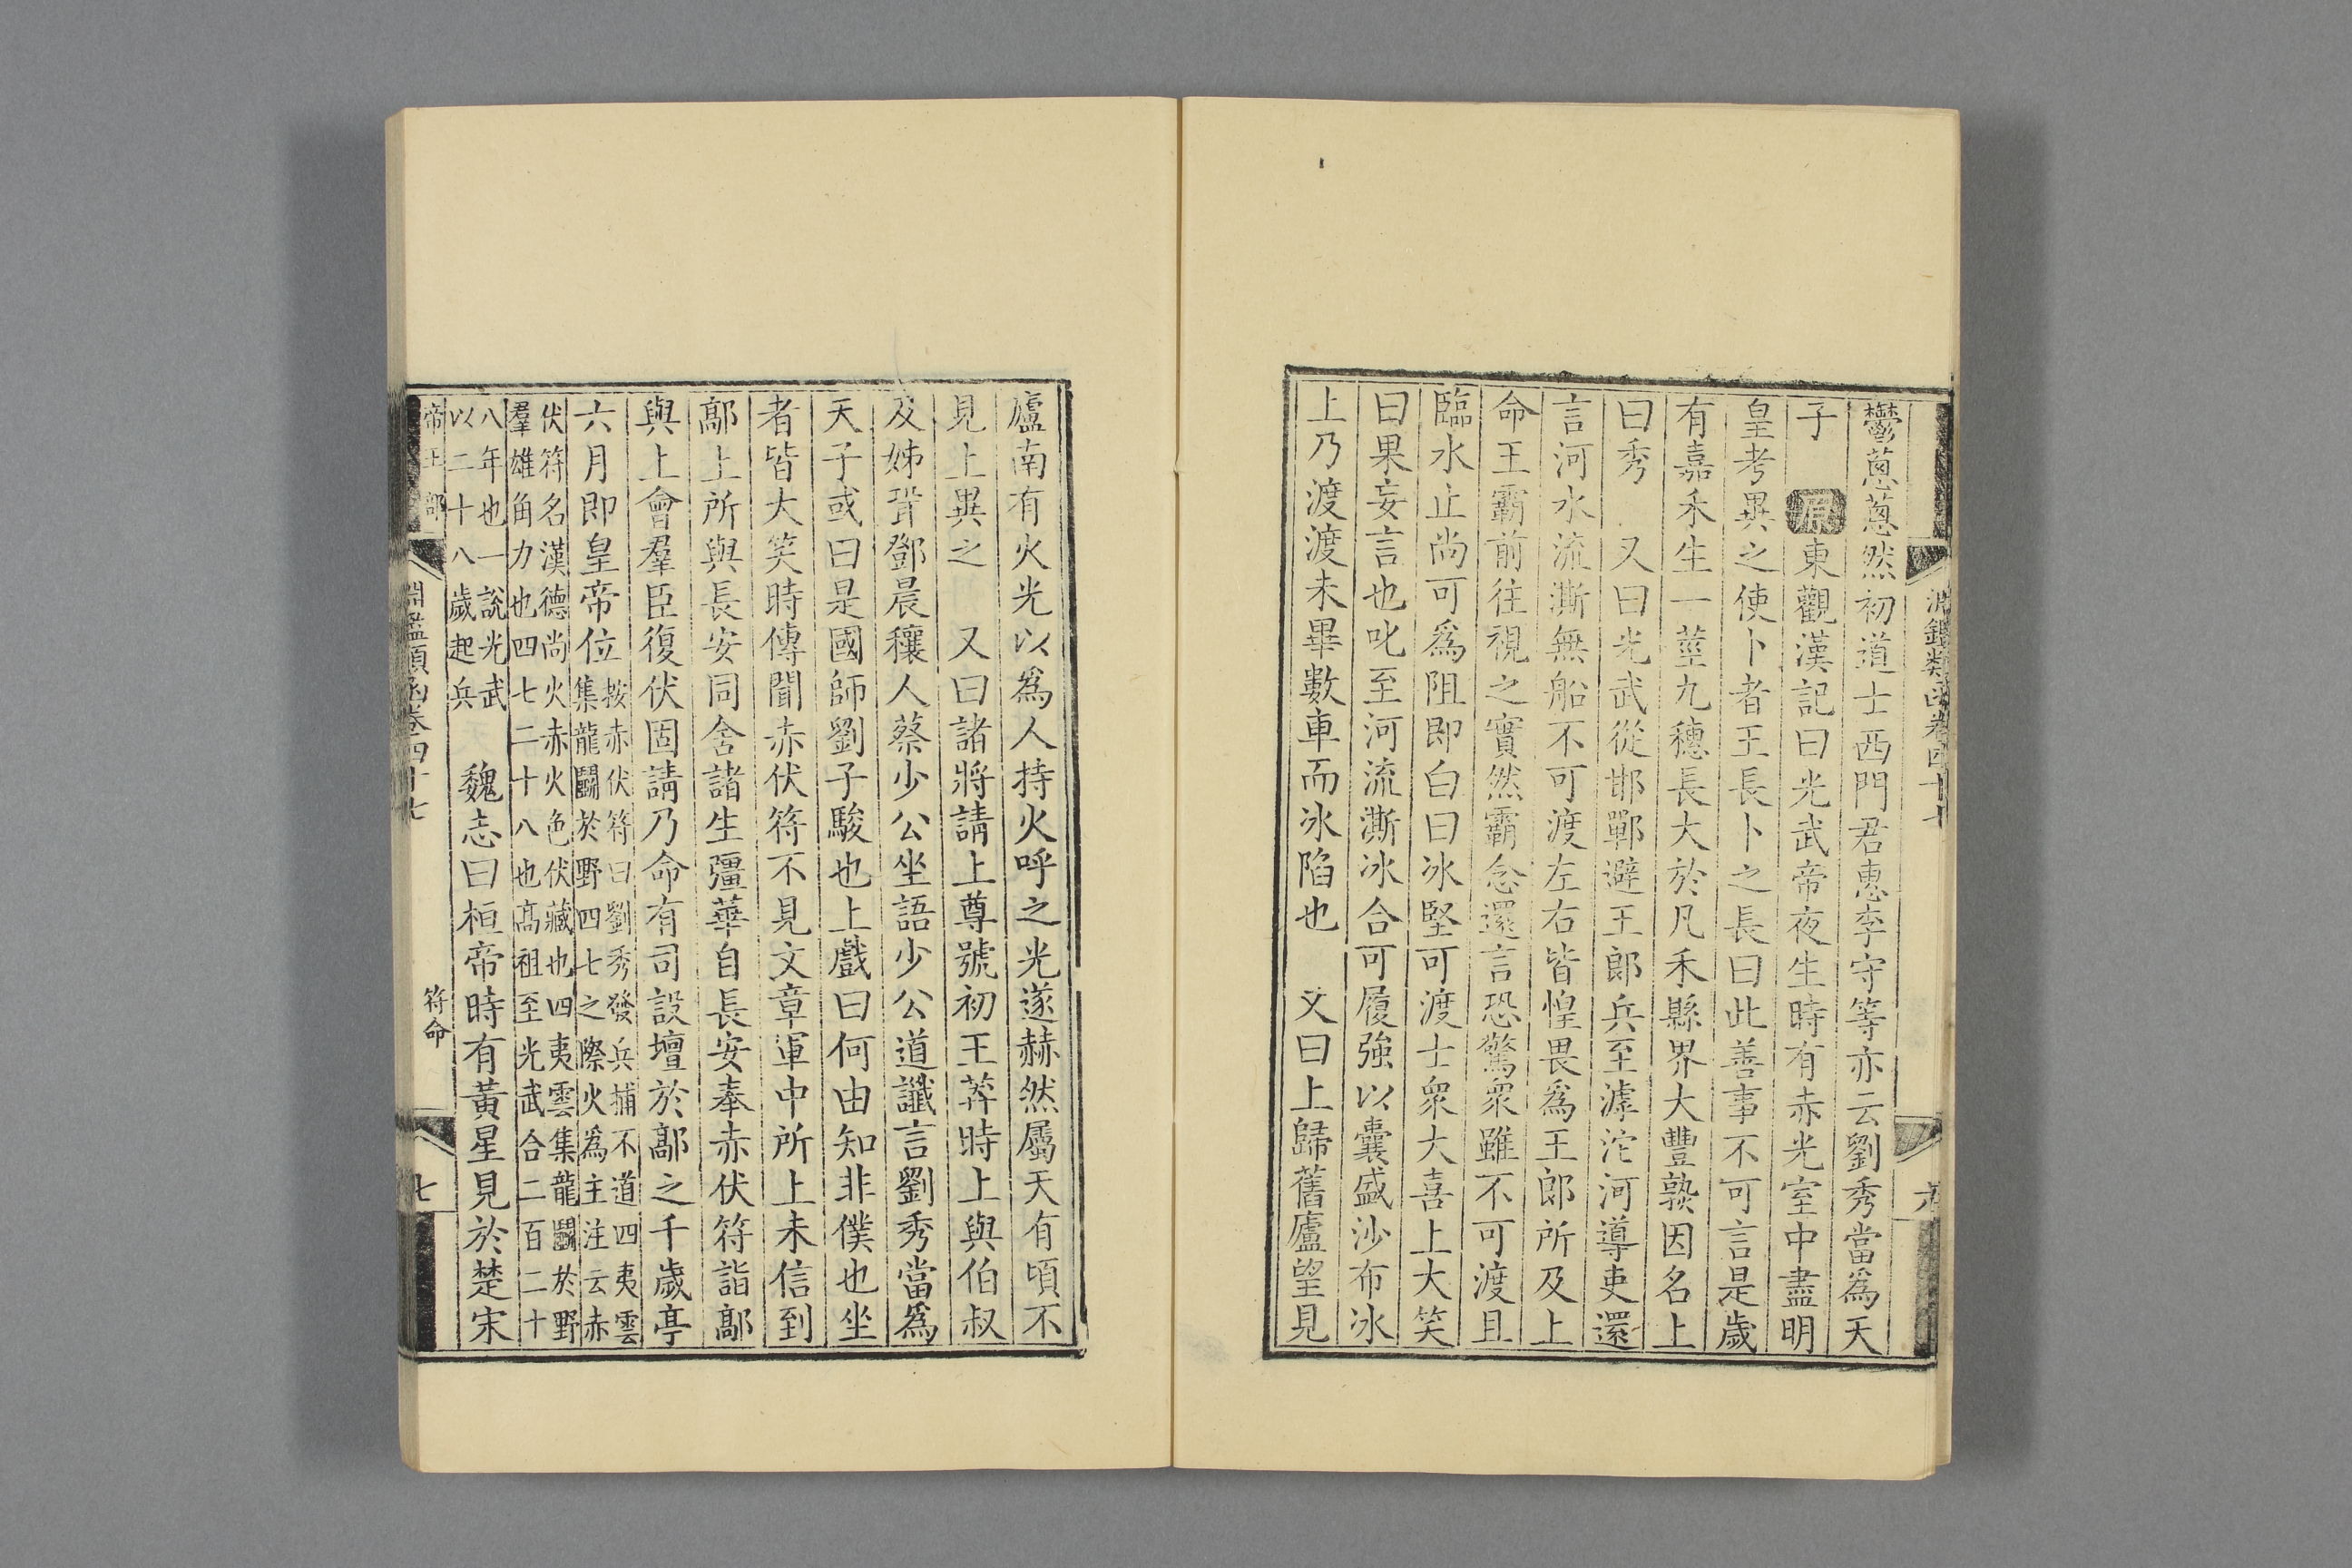 淵鑑類函卷四十七
六
鬱蔥蔥然初道士西門君惠李守等亦云劉秀當爲天
子　原東觀漢記曰光武帝夜生時有赤光室中盡明
皇考異之使卜者王長卜之長曰此善事不可言是歲
有嘉禾生一莖九穗長大於凡禾縣界大豐孰因名上
曰秀　又曰光武從邯鄲避王郎兵至滹沱河導吏還
言河水流澌無船不可渡左右皆惶畏爲王郎所及上
命王霸前往視之實然霸念還言恐驚衆雖不可渡且
臨水止尚可爲阻即白曰冰堅可渡士衆大喜上大笑
曰果妄言也叱至河流澌冰合可履強以囊盛沙布冰
上乃渡渡未畢數車而冰陷也　又曰上歸舊廬望見
廬南有火光以爲人持火呼之光遂赫然屬天有頃不
見上異之　又曰諸將請上尊號初王莽時上與伯叔
及姊壻鄧晨穰人蔡少公坐語少公道讖言劉秀當爲
天子或曰是國師劉子駿也上戲曰何由知非僕也坐
者皆大笑時傳聞赤伏符不見文章軍中所上未信到
鄗上所與長安同舍諸生彊華自長安奉赤伏符詣鄗
與上會羣臣復伏固請乃命有司設壇於鄗之千歲亭
六月即皇帝位
按赤伏符曰劉秀發兵捕不道四夷雲
集龍鬭於野四七之際火爲主注云赤
伏符名漢德尚火赤火色伏藏也四夷雲集龍鬭於野
羣雄角力也四七二十八也高祖至光武合二百二十
八年也一說光武
以二十八歲起兵
魏志曰桓帝時有黃星見於楚宋
帝王部
淵鑑類函卷四十七
符命
七